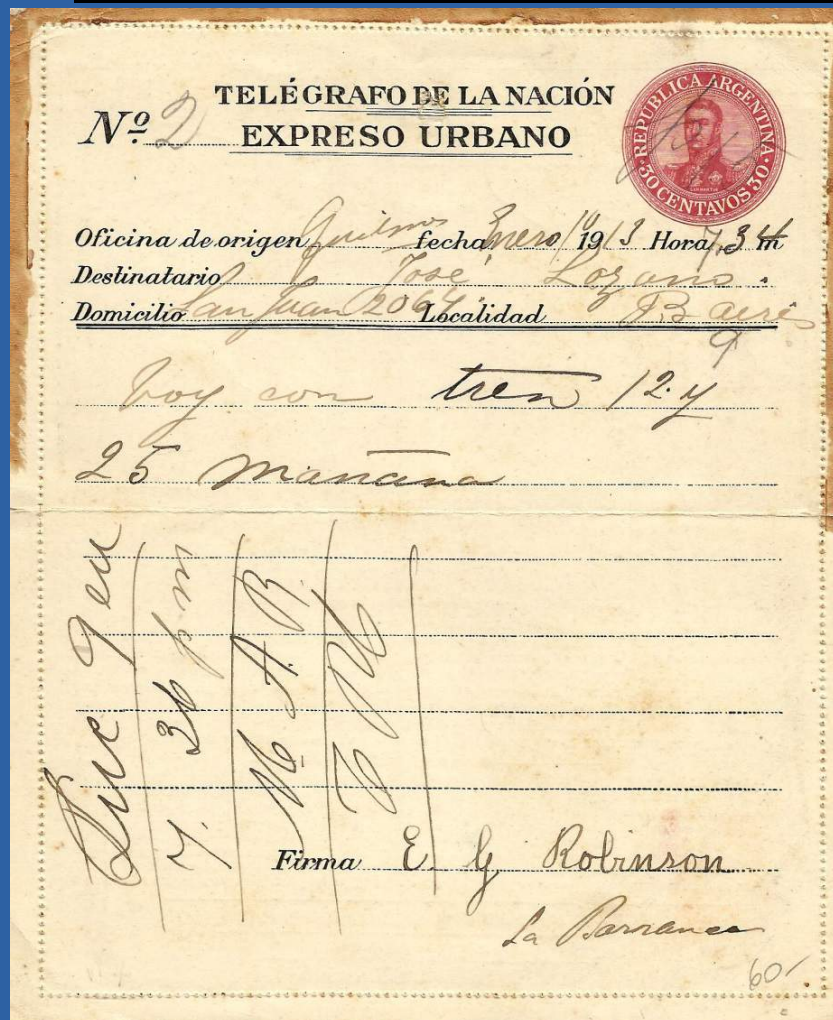 TELÉGRAFO DE LA NACIÓN
Nº 2 EXPRESO URBANO
REPUBLICA ARGENTINA
30 CENTAVOS 30
Oficina de origen Quilmes fecha Enero 10 1913 Hora 7.34 m
Destinatario José Lozano.
Domicilio San Juan 2064 Localidad B aires
9
Voy con tren 12 y
25 mañana
7. 36 p m
M A R
Firma E. G Robinson
La Barranca
60